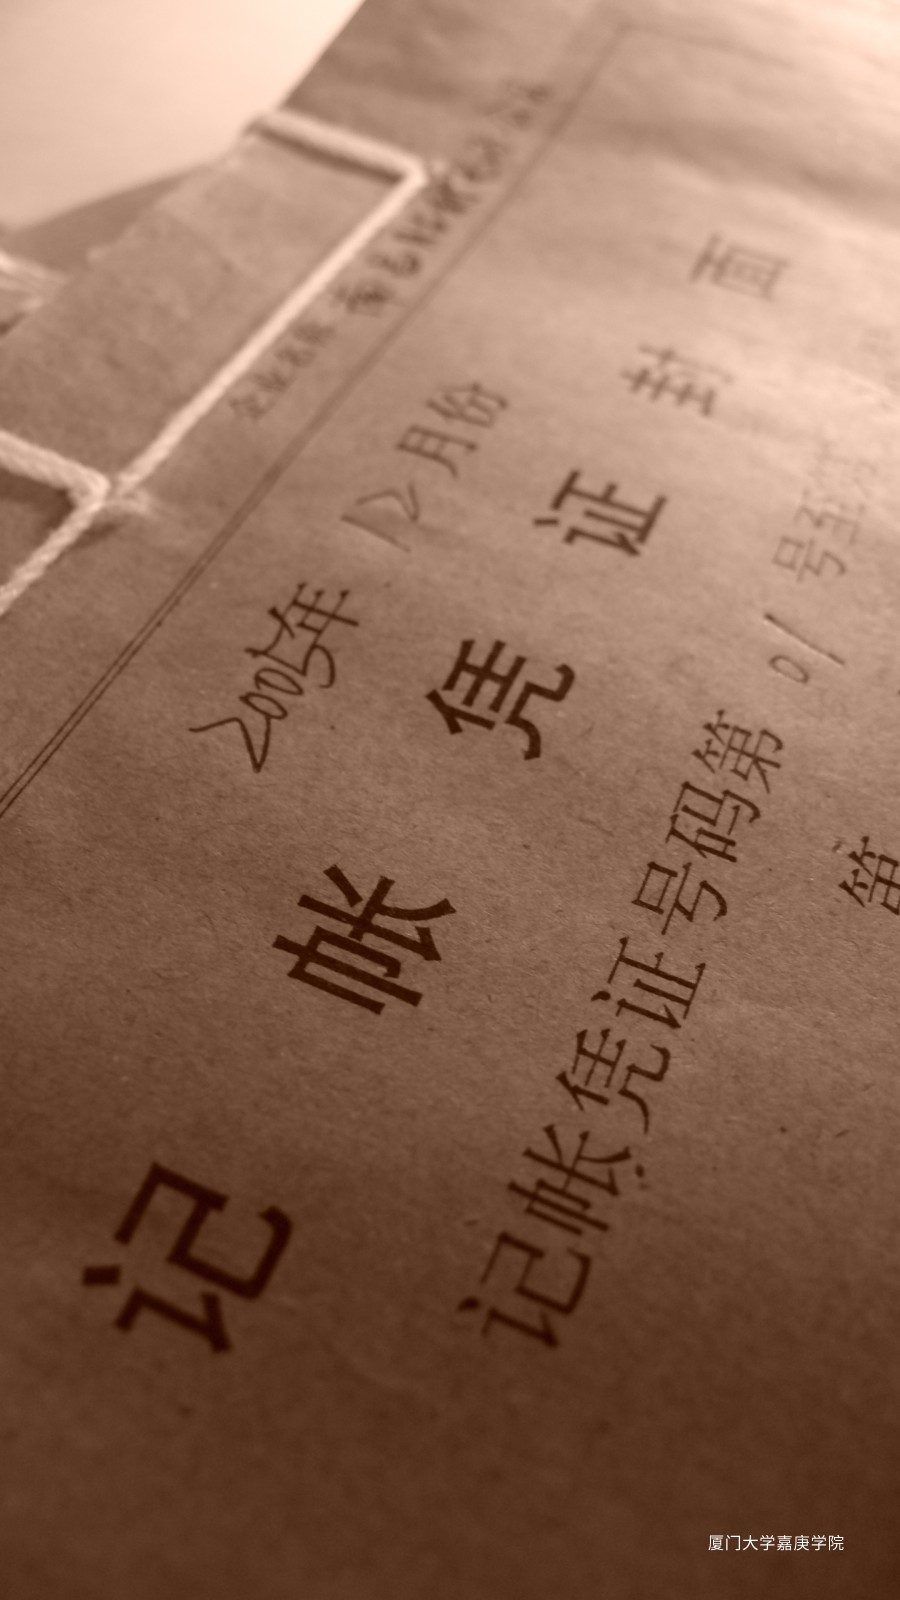 企业名称
2005年 12月份
记帐凭证封面
记帐凭证号码第 01 号至第
第
厦门大学嘉庚学院